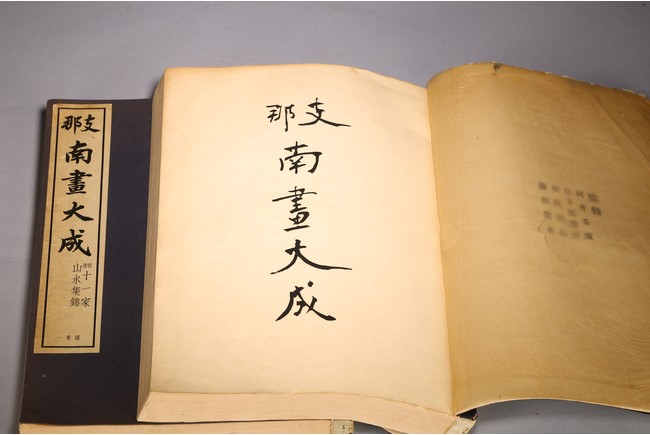 支那
南畫大成
十一家
山水集錦
支那
南畫大成